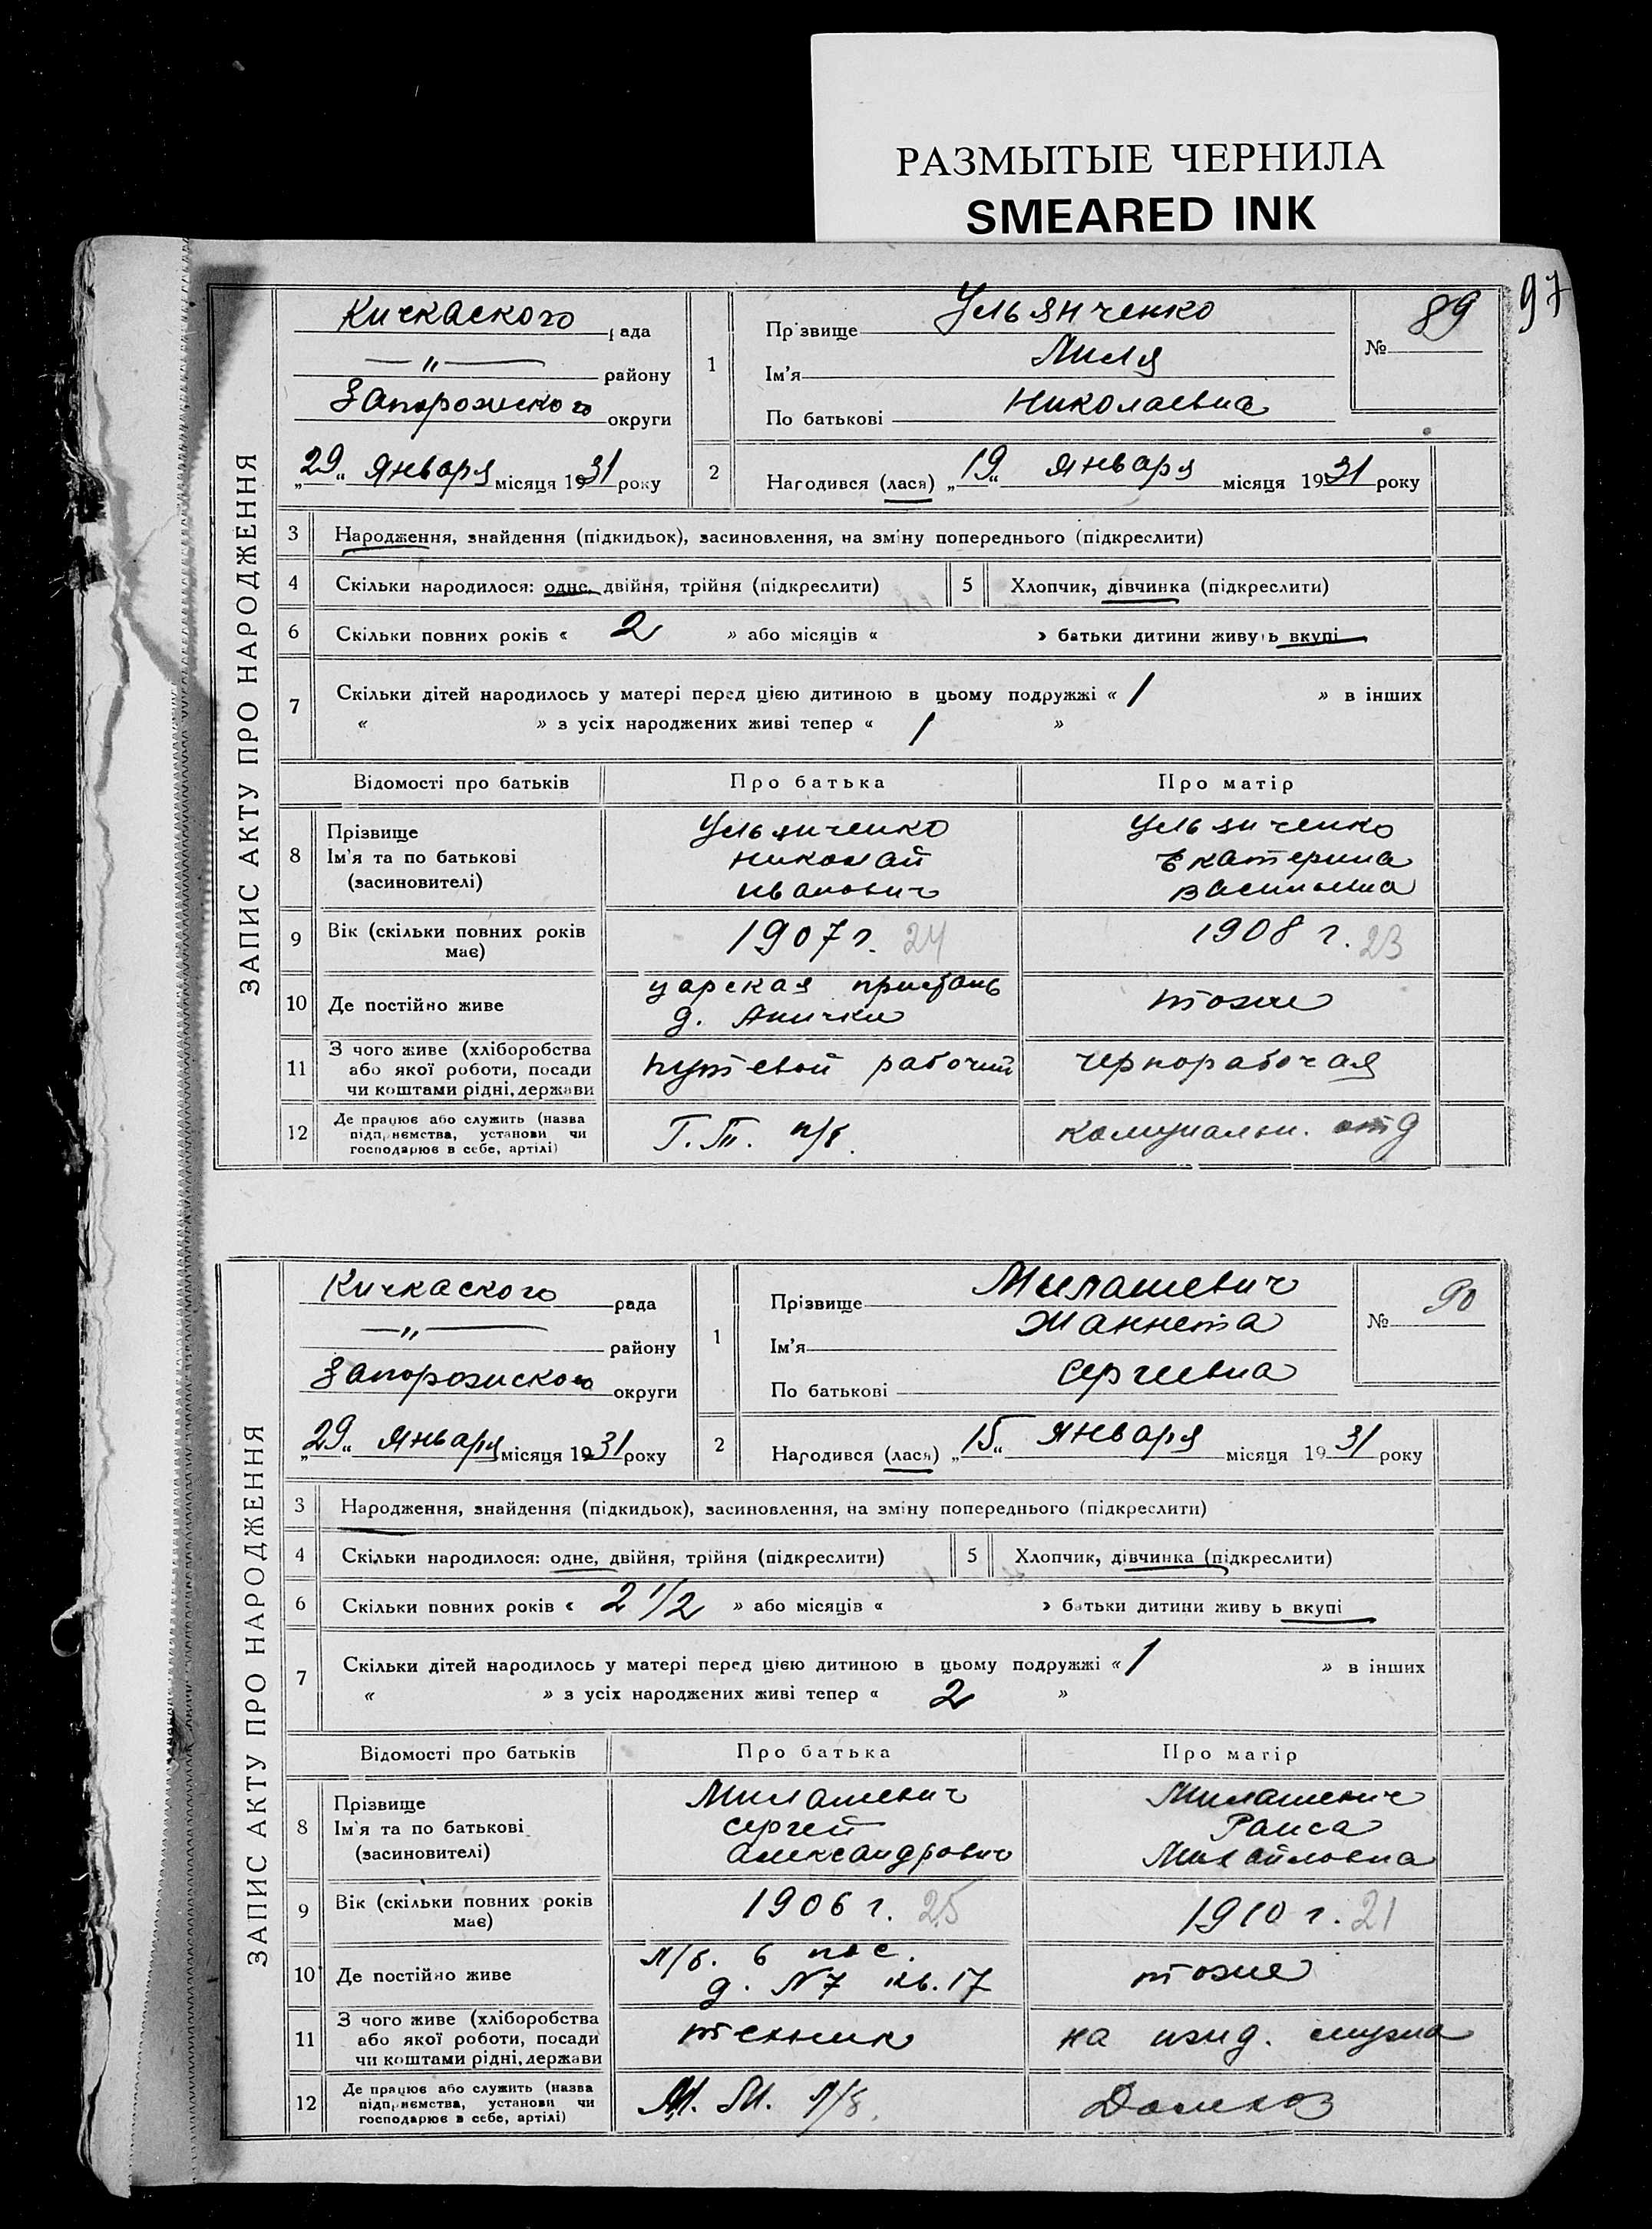 РАЗМЫТЫЕ ЧЕРНИЛА
SMEARED INK
97
ЗАПИС АКТУ ПРО НАРОДЖЕННЯ
Кичкаского рада
—"— району
Запорожского округи
„29“ Января місяця 1931 року
1
Прізвище Ульянченко
Ім'я Лиля
По батькові Николаевна
№ 89
2 Народився (лася) „19“ Января місяця 1931 року
3 Народження, знайдення (підкидьок), засиновлення, на зміну попереднього (підкреслити)
4 Скільки народилося: одне, двійня, трійня (підкреслити) 5 Хлопчик, дівчинка (підкреслити)
6 Скільки повних років « 2 » або місяців « » батьки дитини живуть вкупі
7 Скільки дітей народилось у матері перед цією дитиною в цьому подружжі « 1 » в інших
« » з усіх народжених живі тепер « 1 »
Відомості про батьків Про батька Про матір
8 Прізвище Ім'я та по батькові (засиновителі)
Ульянченко Николай Иванович
Ульянченко Екатерина Васильевна
9 Вік (скільки повних років має) 1907 г. 24 1908 г. 23
10 Де постійно живе царская пристань д. тоже
11 З чого живе (хліборобства або якої роботи, посади чи коштами рідні, держави путевой рабочий чернорабочая
12 Де працює або служить (назва підприємства, установи чи господарює в себе, артілі) Г.Т. п/б. комунальн. отд
ЗАПИС АКТУ ПРО НАРОДЖЕННЯ
Кичкаского рада
—"— району
Запорожского округи
„29“ Января місяця 1931 року
1
Прізвище Милашевич
Ім'я Жаннета
По батькові Сергеевна
№ 90
2 Народився (лася) „15“ Января місяця 1931 року
3 Народження, знайдення (підкидьок), засиновлення, на зміну попереднього (підкреслити)
4 Скільки народилося: одне, двійня, трійня (підкреслити) 5 Хлопчик, дівчинка (підкреслити)
6 Скільки повних років « 2 1/2 » або місяців « » батьки дитини живу ь вкупі
7 Скільки дітей народилось у матері перед цією дитиною в цьому подружжі « 1 » в інших
« » з усіх народжених живі тепер « 2 »
Відомості про батьків Про батька Про матір
8 Прізвище Ім'я та по батькові (засиновителі)
Милашевич Сергей Александрович
Милашевич Раиса Михайловна
9 Вік (скільки повних років має) 1906 г. 25 1910 г. 21
10 Де постійно живе л/б. 6 пос. д. №7 кв. 17 тоже
11 З чого живе (хліборобства або якої роботи, посади чи коштами рідні, держави техник на ижд. мужа
12 Де працює або служить (назва підприємства, установи чи господарює в себе, артілі) М.М. л/б. Домхоз